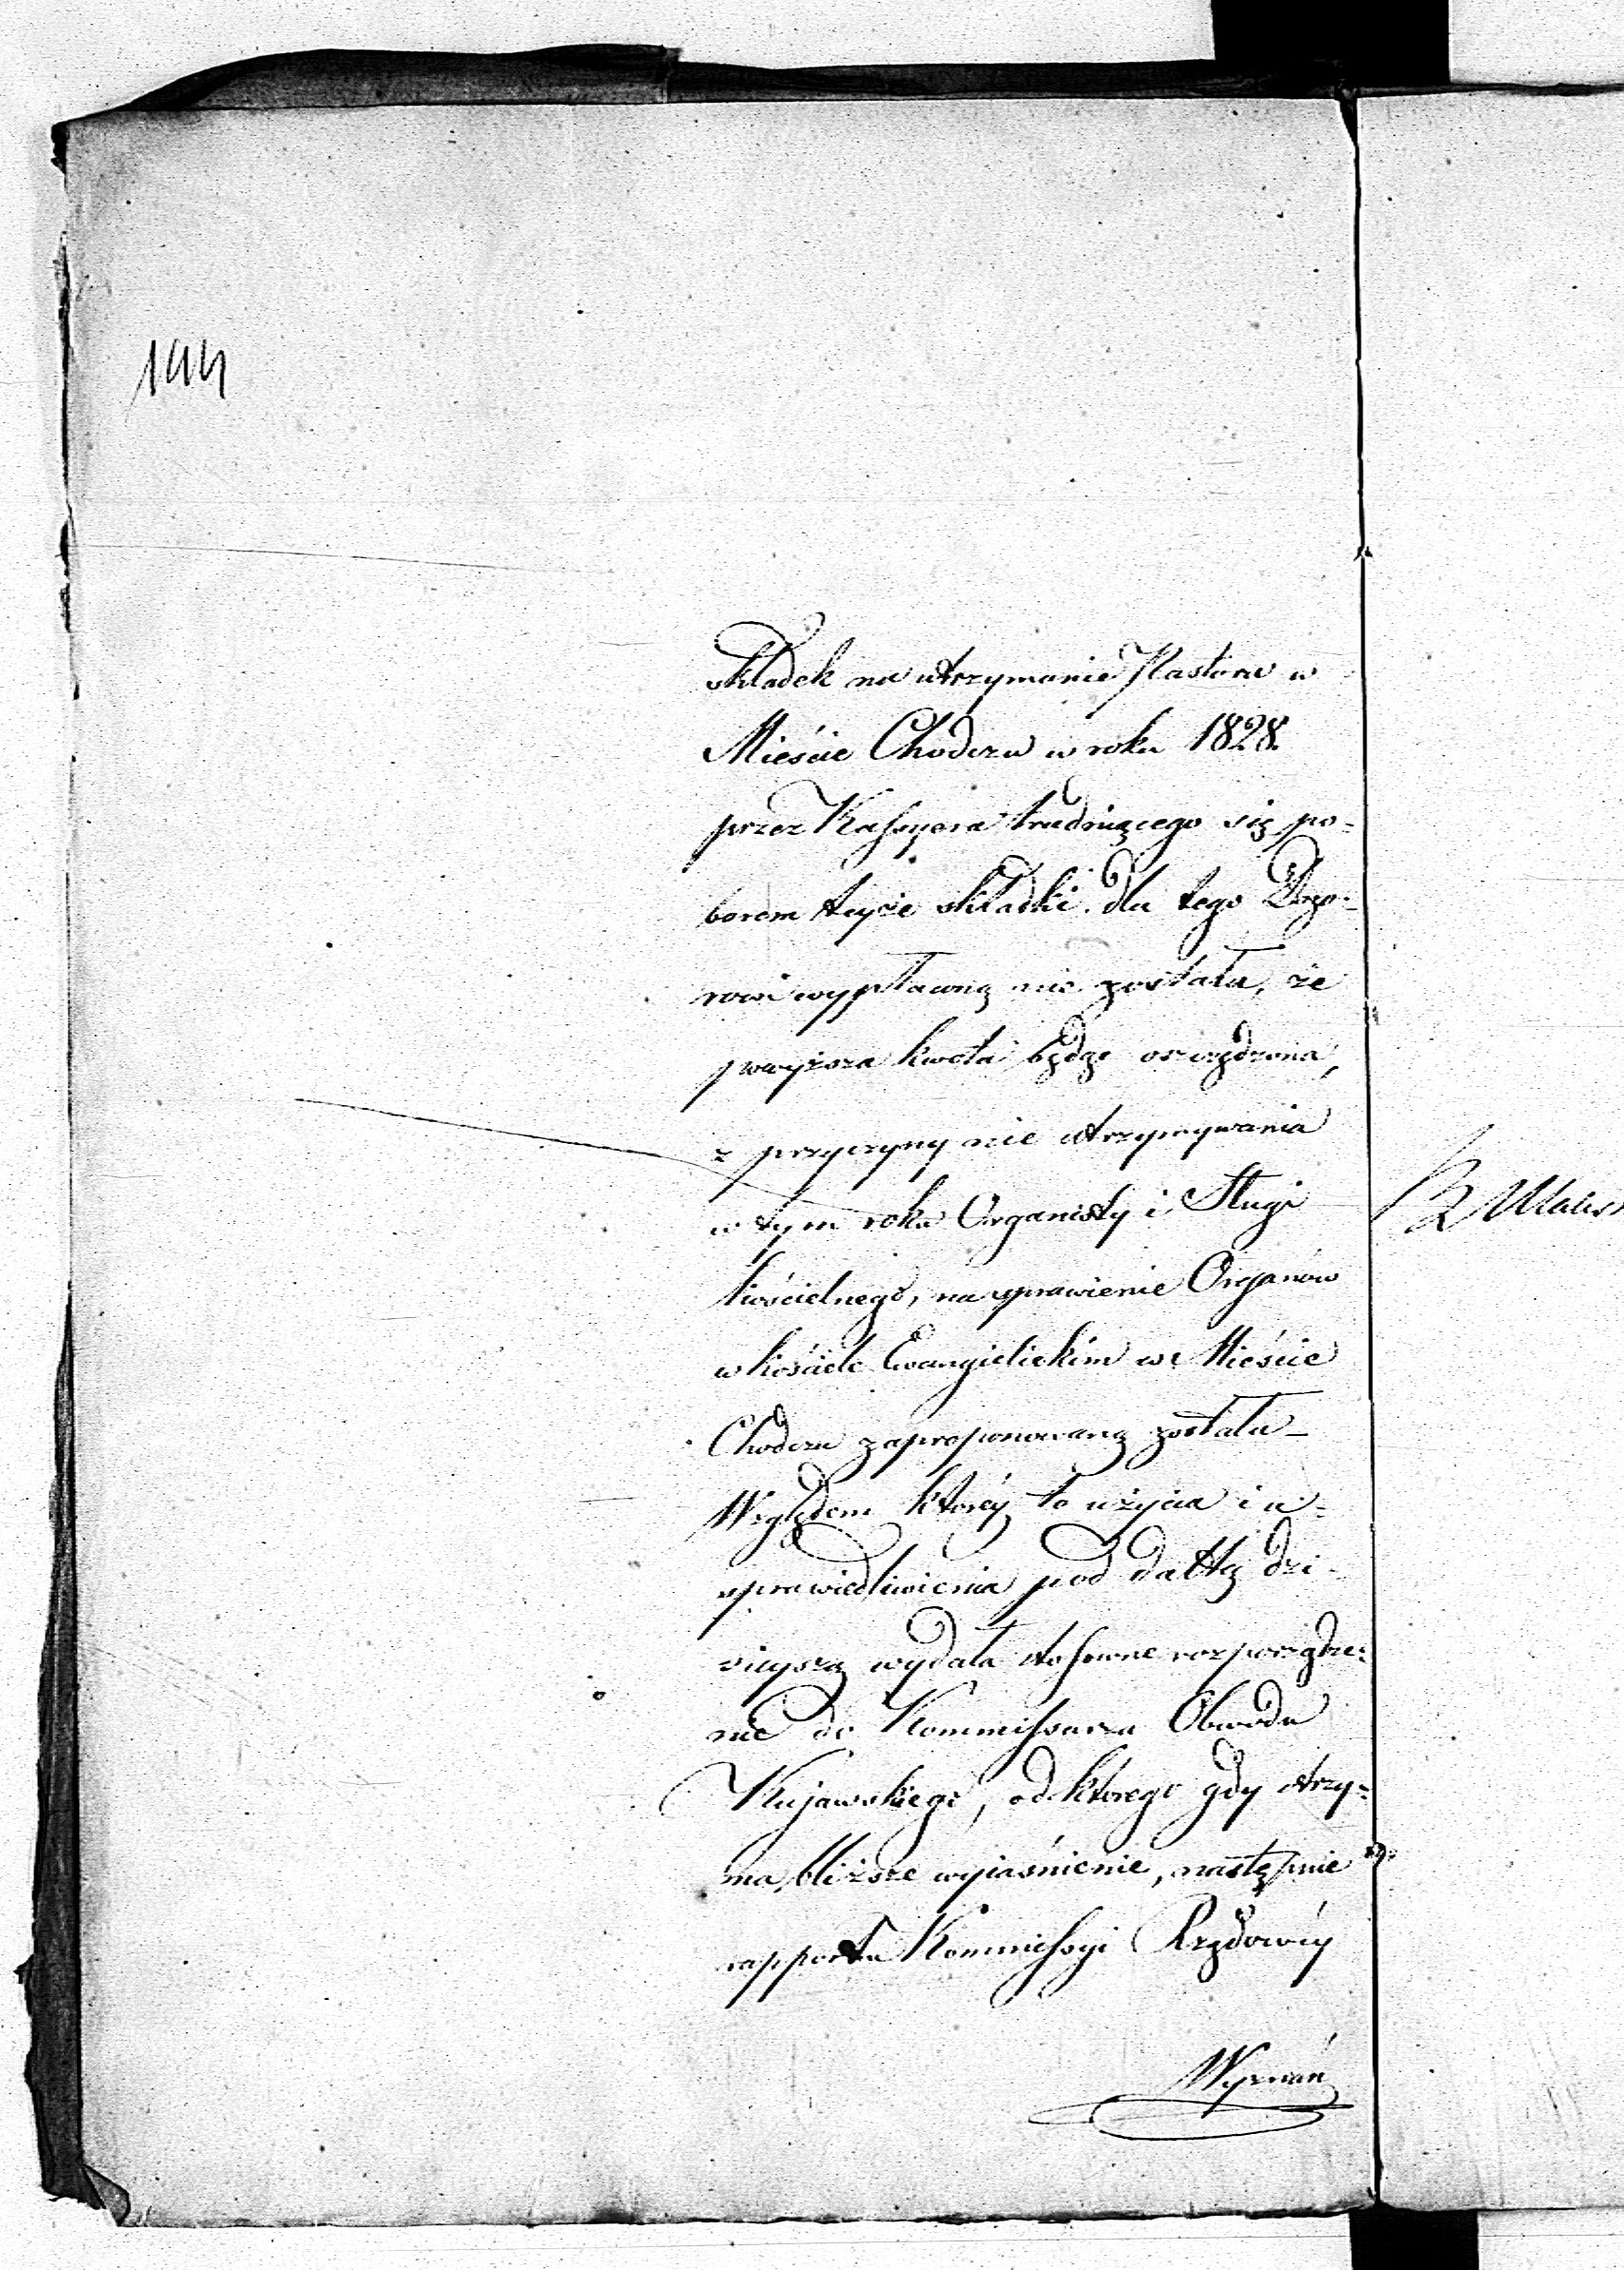 144
składek na utrzymanie Pastora w
Mieście Chodczu w roku 1828.
przez Kassyera trudniącego się po-
borem teyże składki dla tego Dozo-
rowi wypłacną nie została, że
powyższa kwota będąc oszczędzona,
z przyczyny nie utrzymywania
w tym roku Organisty i Sługi
kościelnego, na sprawienie Organów
w kościele Ewangielickim w Mieście
Chodczu zaproponowaną została_
Względem któréy to użycia i u-
sprawiedliwienia pod dattą dzi-
sieyszą wydała stosowne rozporządze-
nie do Kommissarza Obwodu
Kujawskiego, od ktorego gdy otrzy-
ma bliższe wyiaśnienie, następnie
rapport Kommissyi Rządowéy